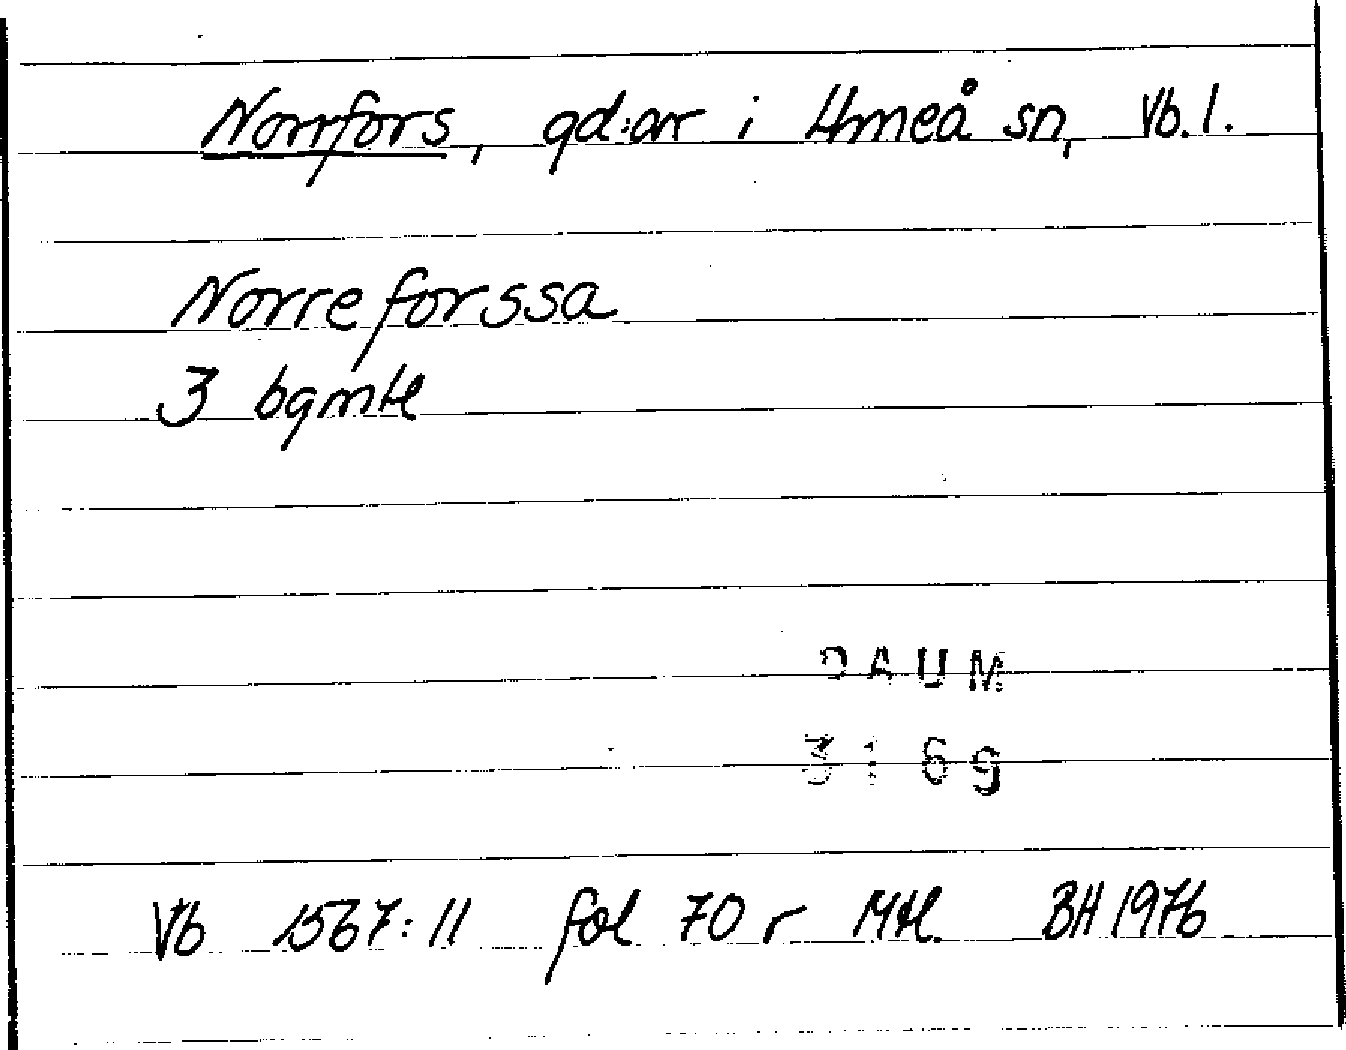 Norrfors, gd:ar i Umeå sn, Vb. l.
Norreforssa
3 bgmtl
DAUM
3169
Vb 1567:11 fol 70 r Mtl. BH 1976